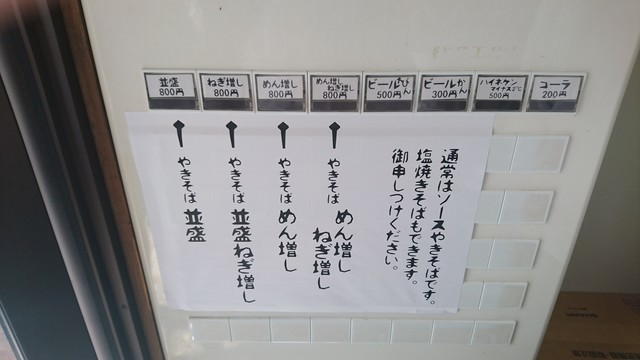 並盛
800円
ねぎ増し
800円
めん増し
800円
めん増し
ねぎ増し
800円
ビール
500円
ビールかん
300円
ハイネケン
マイナス5℃
500円
コーラ
200円
通常はソースやきそばです。
塩焼きそばもできます。
御申しつけください。
やきそば めん増し
ねぎ増し
やきそば めん増し
やきそば 並盛ねぎ増し
やきそば 並盛